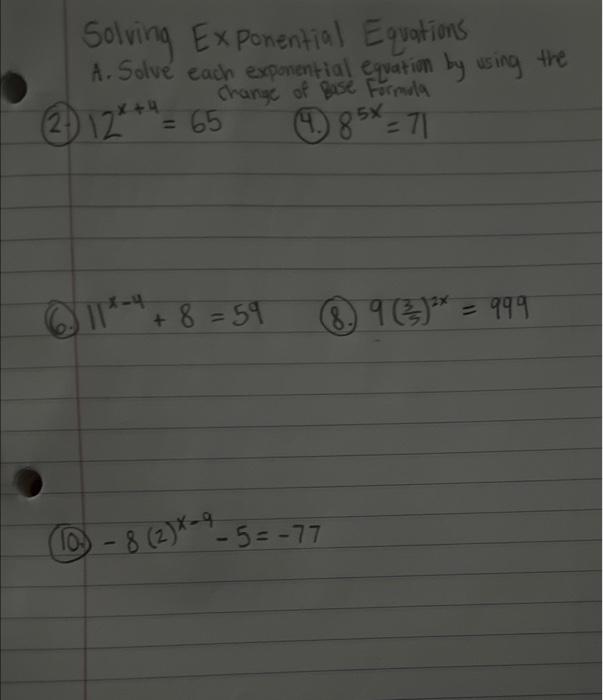 Solving Exponential Equations
A. Solve each exponential equation by using the
Change of Base Formula
2. 12^{x+4} = 65 4. 8^{5x} = 71
6. 11^{x-4} + 8 = 59 8. 9(3/5)^{2x} = 999
10. -8(2)^{x-9} - 5 = -77